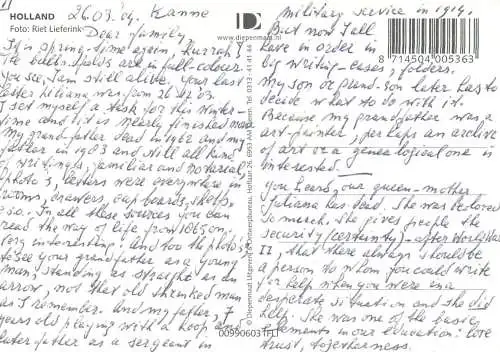 HOLLAND
Foto: Riet Lieferink
26.03.04. Kanne
Dear family,
It is spring-time again, hurrah!
The bulbs-fields are in full-colour.
You see, I am still alive. Your last
letter to liann was from 26.02.03.
I set myself a task for this winter-
time and it is nearly finished now
My grand-father died in 1962 and my
father in 1983 and still all kind
of writings, familiar and notarial
photo's, letters were everywhere in
rooms, drawers, cupboards, shelfs
e.s.o. In all these sources you can
read the way of life from 1865 on,
very interesting! And too the photo's,
to see your grandfather as a young
man standing as straight as an
arrow, not that old shrunked man
as I remember. And my father, 7
years old playing with a hoop and
later father as a sergeant in
military service in 1914.
But now I all
have in order in
big writing-cases, folders.
My son or grand-son later has to
decide what to do with it.
Because my grandfather was a
art-painter, perhaps an archive
of art or a genealogical one is
interested.
You heard, our queen-mother
Juliana has dead. She was
so much. She gives people the
security (certainty) after World War
II, that there always should be
a person to whom you could write
for help when you were in a
desperate situation and she did
help. She was one of the basic
elements in our education: love
trust, togetherness.
www.diepenmaat.nl
8 714504 005363
00990603TFLI